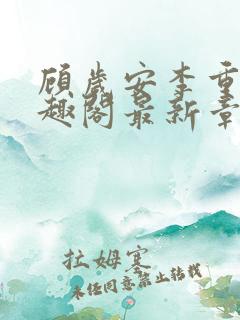 顾岁安李重
趣阁最新章
拉姆寒
未经同意禁止转载